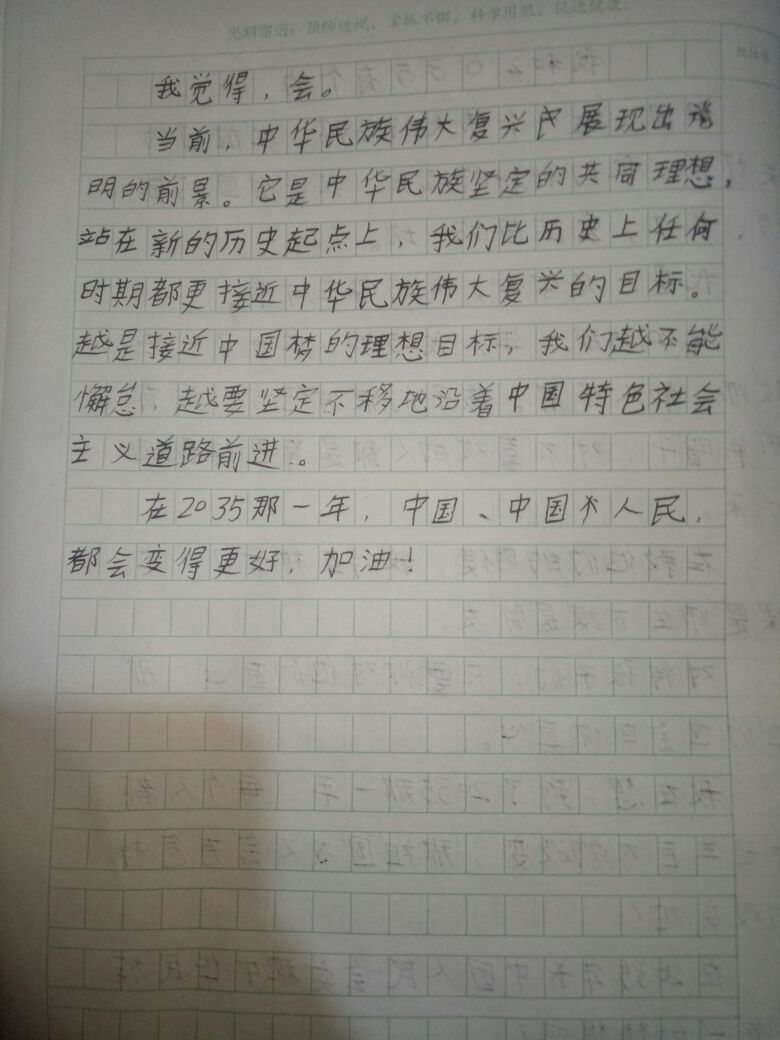 光明寄语：预防近视、常抓不懈、科学用眼、促进健康。
我觉得，会。
当前，中华民族伟大复兴展现出
明的前景。它是中华民族坚定的共同理想，
站在新的历史起点上，我们比历史上任何
时期都更接近中华民族伟大复兴的目标。
越是接近中国梦的理想目标，我们越不能
懈怠，越要坚定不移地沿着中国特色社会
主义道路前进。
在2035那一年，中国、中国人民，
都会变得更好，加油！